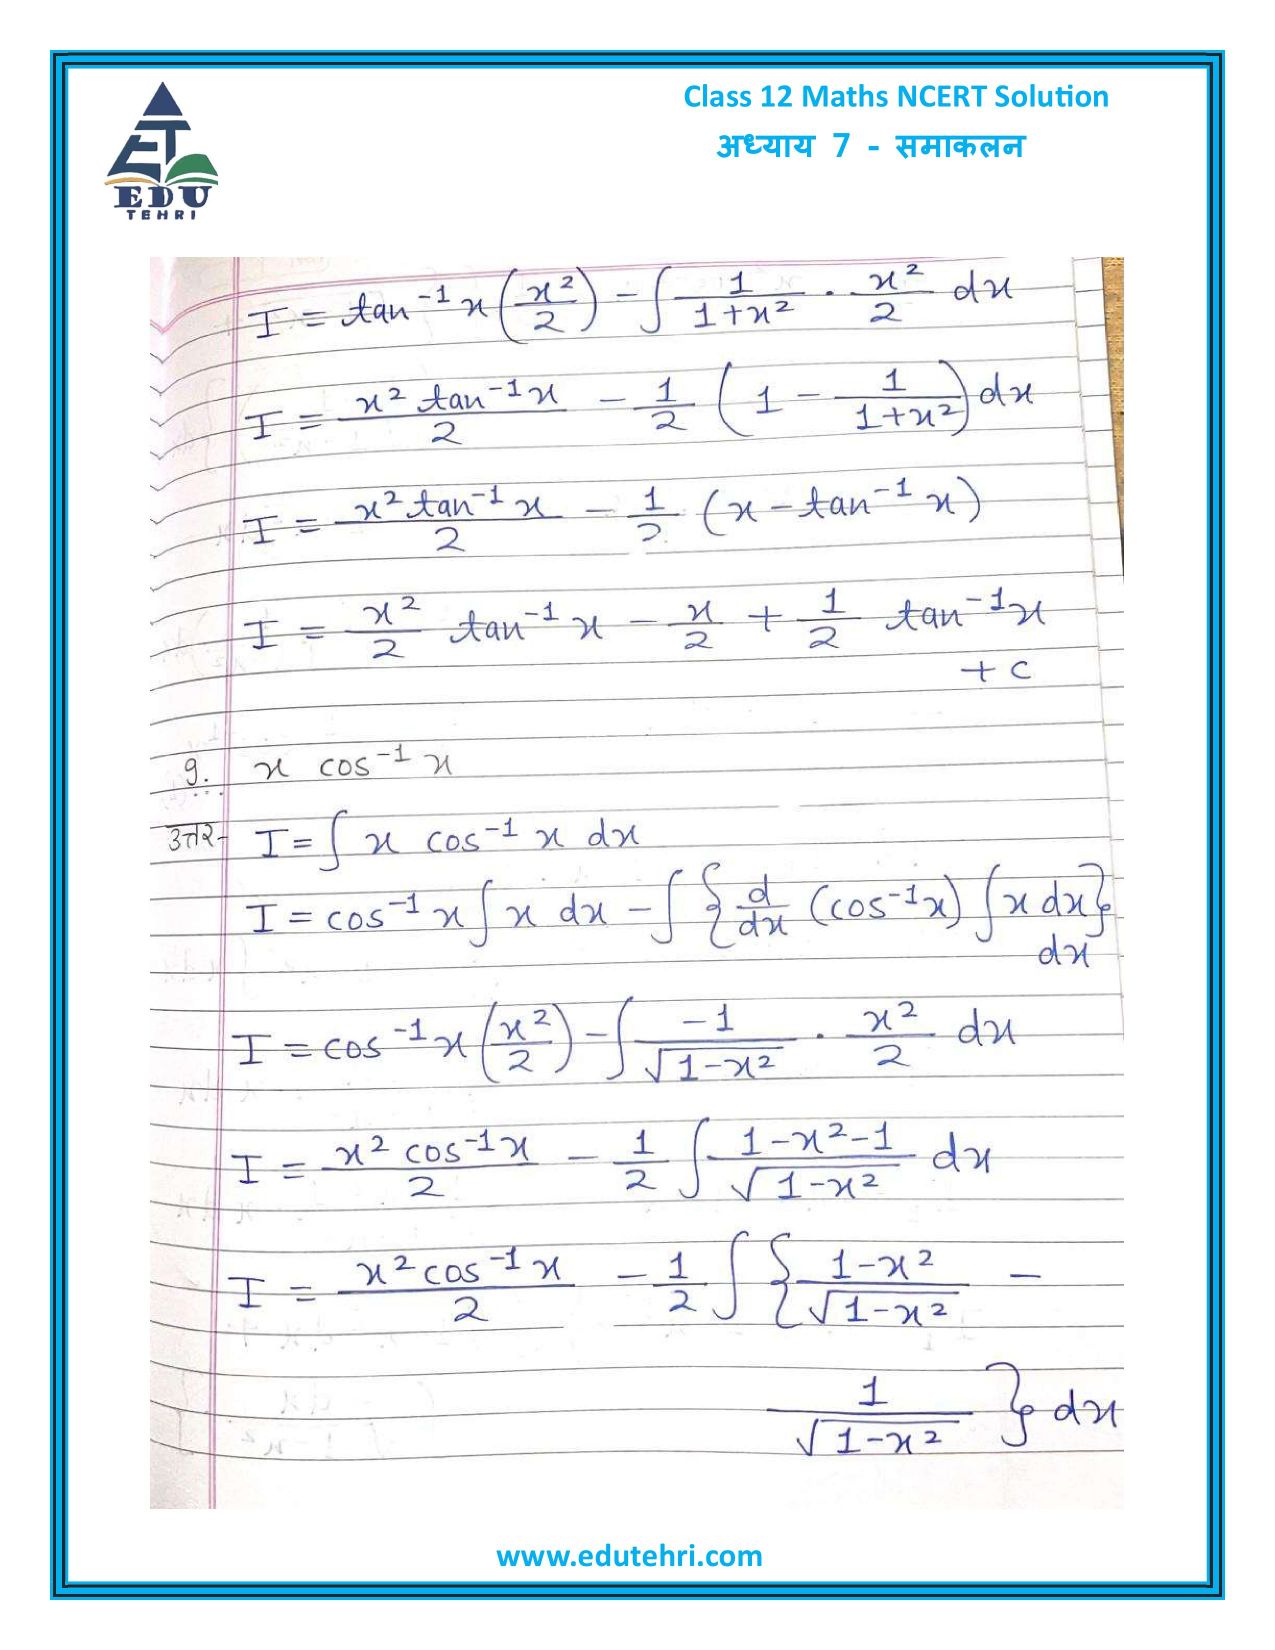 Class 12 Maths NCERT Solution
अध्याय 7 - समाकलन
EDU
TEHRI
I = tan⁻¹ x (x²/2) - ∫ 1/(1+x²) . x²/2 dx
I = x² tan⁻¹x/2 - 1/2 (1 - 1/(1+x²)) dx
I = x² tan⁻¹ x/2 - 1/2 (x - tan⁻¹ x)
I = x²/2 tan⁻¹ x - x/2 + 1/2 tan⁻¹x
+ c
9. x cos⁻¹ x
उत्तर- I = ∫ x cos⁻¹ x dx
I = cos⁻¹ x ∫ x dx - ∫ { d/dx (cos⁻¹x) ∫ x dx }
dx
I = cos⁻¹x (x²/2) - ∫ -1/√(1-x²) . x²/2 dx
I = x² cos⁻¹x/2 - 1/2 ∫ (1-x²-1)/√(1-x²) dx
I = x² cos⁻¹ x/2 - 1/2 ∫ { (1-x²)/√(1-x²) -
1/√(1-x²) } dx
www.edutehri.com